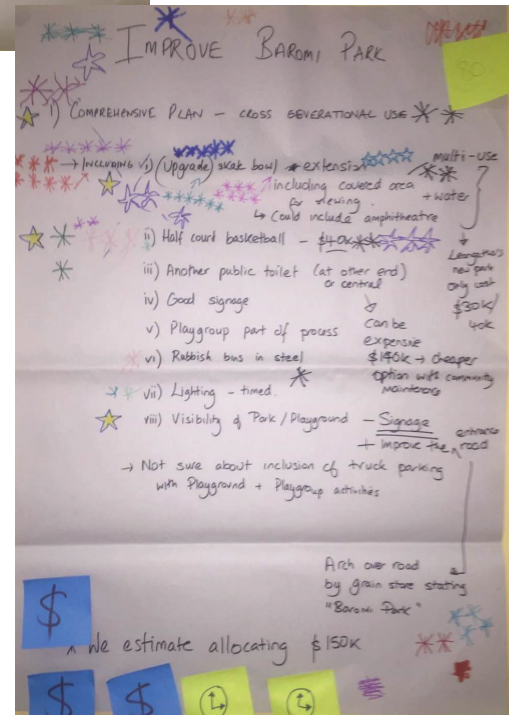 IMPROVE BAROMI PARK
80
1) COMPREHENSIVE PLAN - CROSS GEVERATIONAL USE
→ INCLUDING i) (Upgrade) skate bowl extension
multi-use
+ water
including covered area
for viewing
↳ Could include amphitheatre
ii) Half court basketball - $40k
Leongatha's
new park
only cost
$30K/
40k
iii) Another public toilet (at other end)
or central
iv) Good signage
v) Playgroup part of process
can be
expensive
$140k → cheaper
option with community
maintenance
vi) Rubbish bins in steel
vii) Lighting - timed.
viii) Visibility of Park / Playground - Signage
+ improve the entrance road
→ Not sure about inclusion of truck parking
with Playground + Playgroup activities
Arch over road
by grain store stating
"Baromi Park"
$
We estimate allocating $150K
$ $